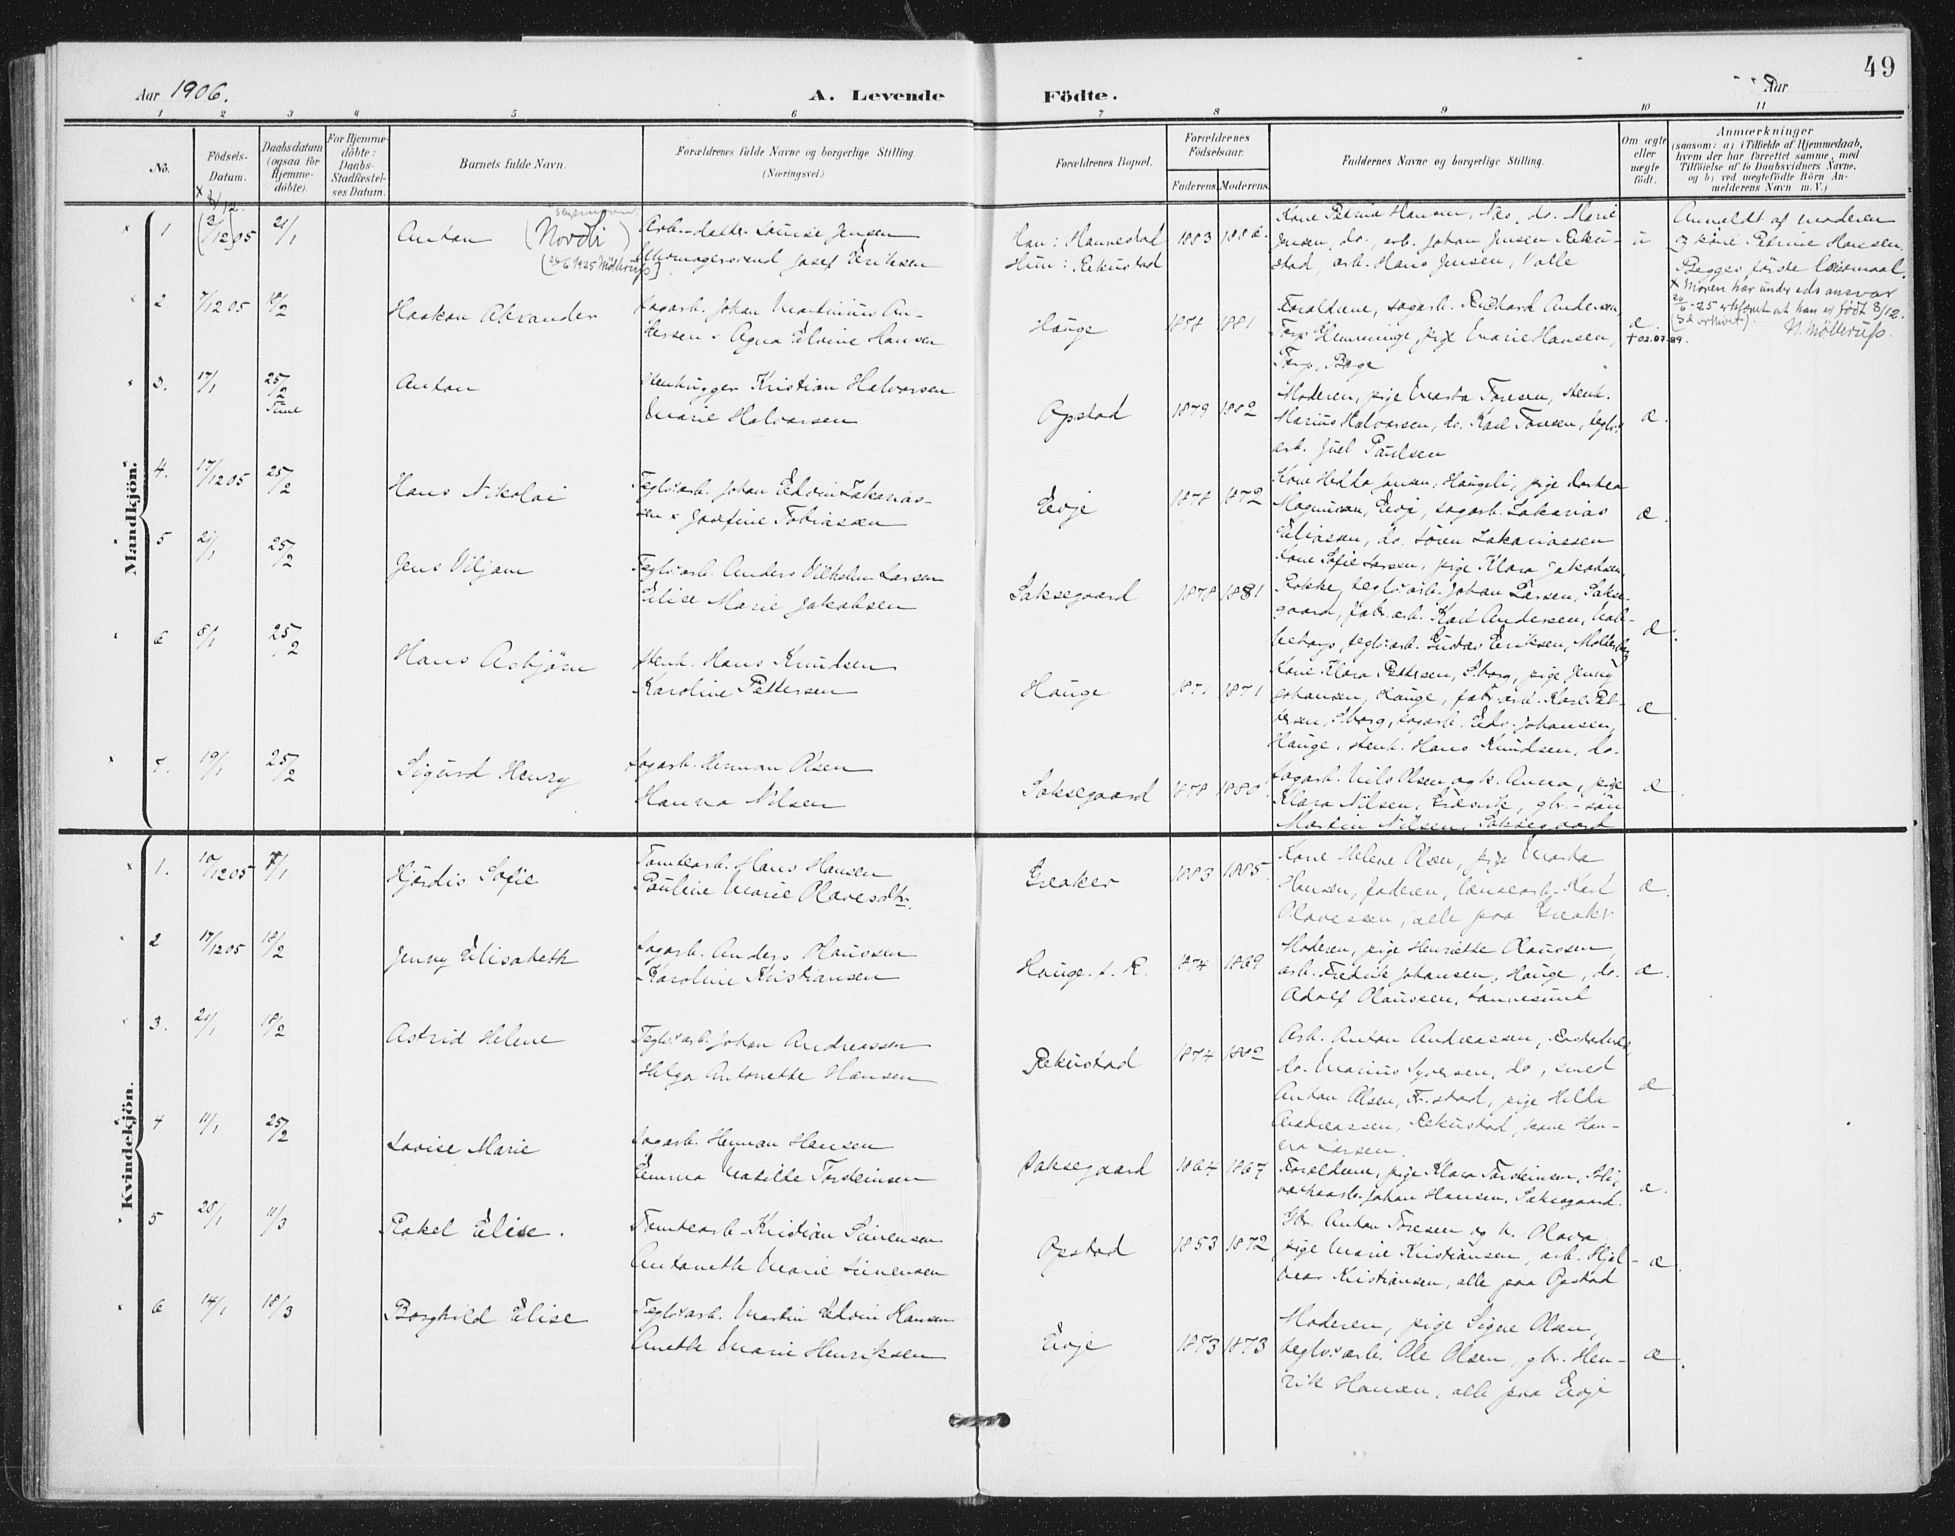 49
Aar 1906.
A. Levende Födte.
Aar
1 2 3 4 5 6 7 8 9 10 11
No.
Födsels-Datum.
Daabsdatum (ogsaa for Hjemme-döbte).
For Hjemme-döbte: Daabs-Stadfæstel-ses Datum.
Barnets fulde Navn.
Forældrenes fulde Navne og borgerlige Stilling.
(Næringsvei.)
Forældrenes Bopæl.
Forældrenes Födselsaar.
Faderens. Moderens.
Faddernes Navne og borgerlige Stilling.
Om ægte eller uægte født.
Anmærkninger
(saasom: a) (Tilfælde af Hjemmedaab,
hvem der har forrettet samme, med
Tilföielse af to Daabsvidners Navne,
og b) ved uægtefödte Börn An-
melderens Navn m. V.)
Mandkjön.
1 21/1 Anton (Nordli)
(26/6 1925 Mölterups)
Arb.-datter Louise Jensen
Josef Eriksen
Han: Hannestad
Hun: Rekustad
1883
Kone Petrine Hansen, Næs, do. Marie
Jensen, do., arb. Johan Jensen Reku-
stad, arb. Hans Jensen, Valle
u
Anmeldt af moderen
og kone Petrine Hansen.
Begges første leiermaal.
x Moren har under eds ansvar
26/6-25 erklæret at han er født 8/12.
(se arkivet). N. Mölterups.
2 7/12 05 18/2 Haakon Alexander
Sagarb. Johan Martinius An-
dersen & Agna Elvine Hansen
Hauge
1878 1881
Forældrene, sagarb. Richard Andersen,
Torp Hemminge, pige Marie Hansen,
Torp, Borge
æ.
† 02.07.89.
3. 17/1 25/2 Tune Anton
Stenhugger Kristian Halvorsen
Marie Halvorsen
Opstad
1879 1882
Moderen, pige Marta Toresen, stenh.
Marius Halvorsen, do. Karl Toresen, teglv.
arb. Juel Paulsen
æ.
4. 17/12 05 25/2 Hans Nikolai
Teglv.arb. Johan Edvin Sakarias-
sen & Josefine Tobiassen
Evje
1878 1872
Kone Hedda Jensen, Haugeli, pige Dortea
Magnussen, Evje, sagarb. Sakarias
Eliassen, do. Søren Sakariassen
æ.
5 21/1 25/2 Jens Viljam
Teglv.arb. Anders Vilhelm Larsen
Elise Marie Jakobsen
Saksegaard
1878 1881
Kone Sofie Larsen, pige Klara Jakobsen,
Rokke, teglv.arb. Johan Larsen, Sakse-
gaard, fabr.arb. Karl Andersen,
teglv.arb. Gustav Eriksen,
æ.
6 5/1 25/2 Hans Asbjörn
Stenh. Hans Knudsen
Karoline Pettersen
Hauge
1871 1871
Kone Klara Pettersen, S.borg, pige Jenny
Johansen, Hauge, fabr.arb. Karl Pet-
tersen, S.borg, sagarb. Edv. Johansen,
Hauge, stenh. Hans Knudsen, do.
æ.
7. 19/1 25/2 Sigurd Henry
Sagarb. Herman Olsen
Hanna Nilsen
Saksegaard
1878 1880
Sagarb. Nils Olsen og k. Anna, pige
Klara Nilsen, gbr.-søn
Martin Nilsen, Saksegaard
æ.
Kvindekjön.
1. 10/12 05 7/1 Hjördis Sofie
Tomtearb. Hans Hansen
Pauline Marie Olavesdtr.
Greaker
1883 1885.
Kone Helene Olsen, pige Marta
Hansen, faderen, lensearb. Karl
Olavessen, alle paa Greaker
æ.
2 17/12 05 18/2 Jenny Elisabeth
Sagarb. Anders Olaussen
Karoline Kristiansen
Hauge t. R.
1874 1869
Moderen, pige Henriette Olaussen,
arb. Fredrik Johansen, Hauge, do.
Adolf Olaussen, Sannesund
æ.
3. 21/1 18/2 Astrid Helene
Teglv.arb. Johan Andreassen
Helga Antonette Hansen
Rekustad
1874 1882
Arb. Anton Andreassen,
do. Marius Syversen, do, smed
Anton Olsen, Fr.stad, pige Hilda
Andreassen, Rekustad, kone Han-
na Larsen.
æ.
4 11/1 25/2 Lovise Marie
Sagarb. Herman Hansen
Emma Matilde Torsteinsen
Saksegaard
1864 1867
Forældrene, pige Klara Torsteinsen,
Johan Hansen, Saksegaard.
æ.
5 28/1 11/3 Rakel Elise.
Tomtearb. Kristian Simensen
Antonette Marie Simensen
Opstad
1853 1872
Gbr. Anton Toresen og k. Olava,
pige Marie Kristiansen, arb. Hjal-
mar Kristiansen, alle paa Opstad
æ.
6 14/1 18/3 Borghild Elise
Teglv.arb. Martin Edvin Hansen
Anette Marie Henriksen
Evje
1873 1873
Moderen, pige Signe Olsen,
teglv.arb. Ole Olsen, gbr. Hen-
rik Hansen, alle paa Evje
æ.